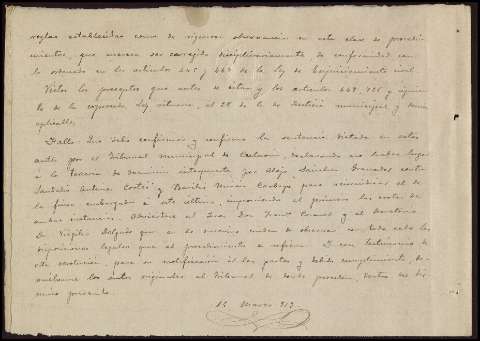 reglas establecidas como de rigurosa observancia en esta clase de procedi-
mientos, que merece ser corregido disciplinariamente de conformidad con
lo ordenado en los artículos 445 y 449 de la ley de Enjuiciamiento civil.
Vistos los preceptos que antes se citan y los artículos
de la expresada ley rituaria, el 28 de la de Justicia municipal y demás
aplicables,
Fallo: Que debo confirmar y confirmo la sentencia dictada en estos
autos por el Tribunal municipal de declarando no haber lugar
a la tercería de dominio interpuesta por Alejo Sánchez Granados contra
Antonio Cortés y para reivindicar el de
la finca embargada a este último, imponiendo al primero las costas de
ambas instancias. Adviértase al Juez Don y al Secretario
D. Virgilio Delgado que en lo sucesivo cuiden de observar con todo celo las
disposiciones legales que al procedimiento se refieren. Y con testimonio de
esta resolución, para su notificación a las partes y debido cumplimiento, de-
vuélvanse los autos originales al Tribunal de donde proceden, dentro del tér-
mino prevenido.
15 Marzo 913